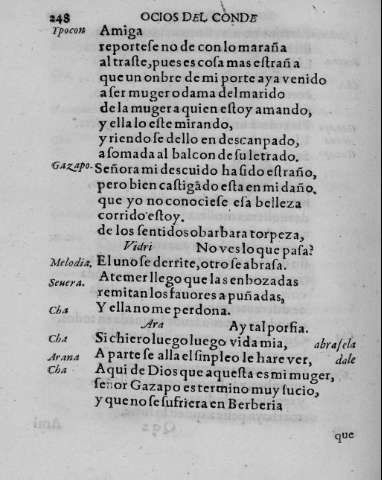 248 OCIOS DEL CONDE
Ypocon Amiga
reportese no de con lo maraña
al traste, pues es cosa mas estraña
que un onbre de mi porte aya venido
a ser muger o dama del marido
de la muger a quien estoy amando,
y ella lo este mirando,
y riendose dello en descanpado,
asomada al balcon de su letrado.
Gazapo. Señora mi descuido ha sido estraño,
pero bien castigado esta en mi daño.
que yo no conociese esa belleza
corrido estoy.
de los sentidos o barbara torpeza,
Vidri No ves lo que pasa?
Melodia. El uno se derrite, otro se abrasa.
Seuera. A temer llego que las enbozadas
remitan los fauores a puñadas,
Cha Y ella no me perdona.
Ara Ay tal porfia.
Cha Si chiero luego luego vida mia, abrasela
Arana A parte se alla el sinpleo le hare ver, dale
Cha Aqui de Dios que aquesta es mi muger,
señor Gazapo es termino muy sucio,
y que no se sufriera en Berberia
que